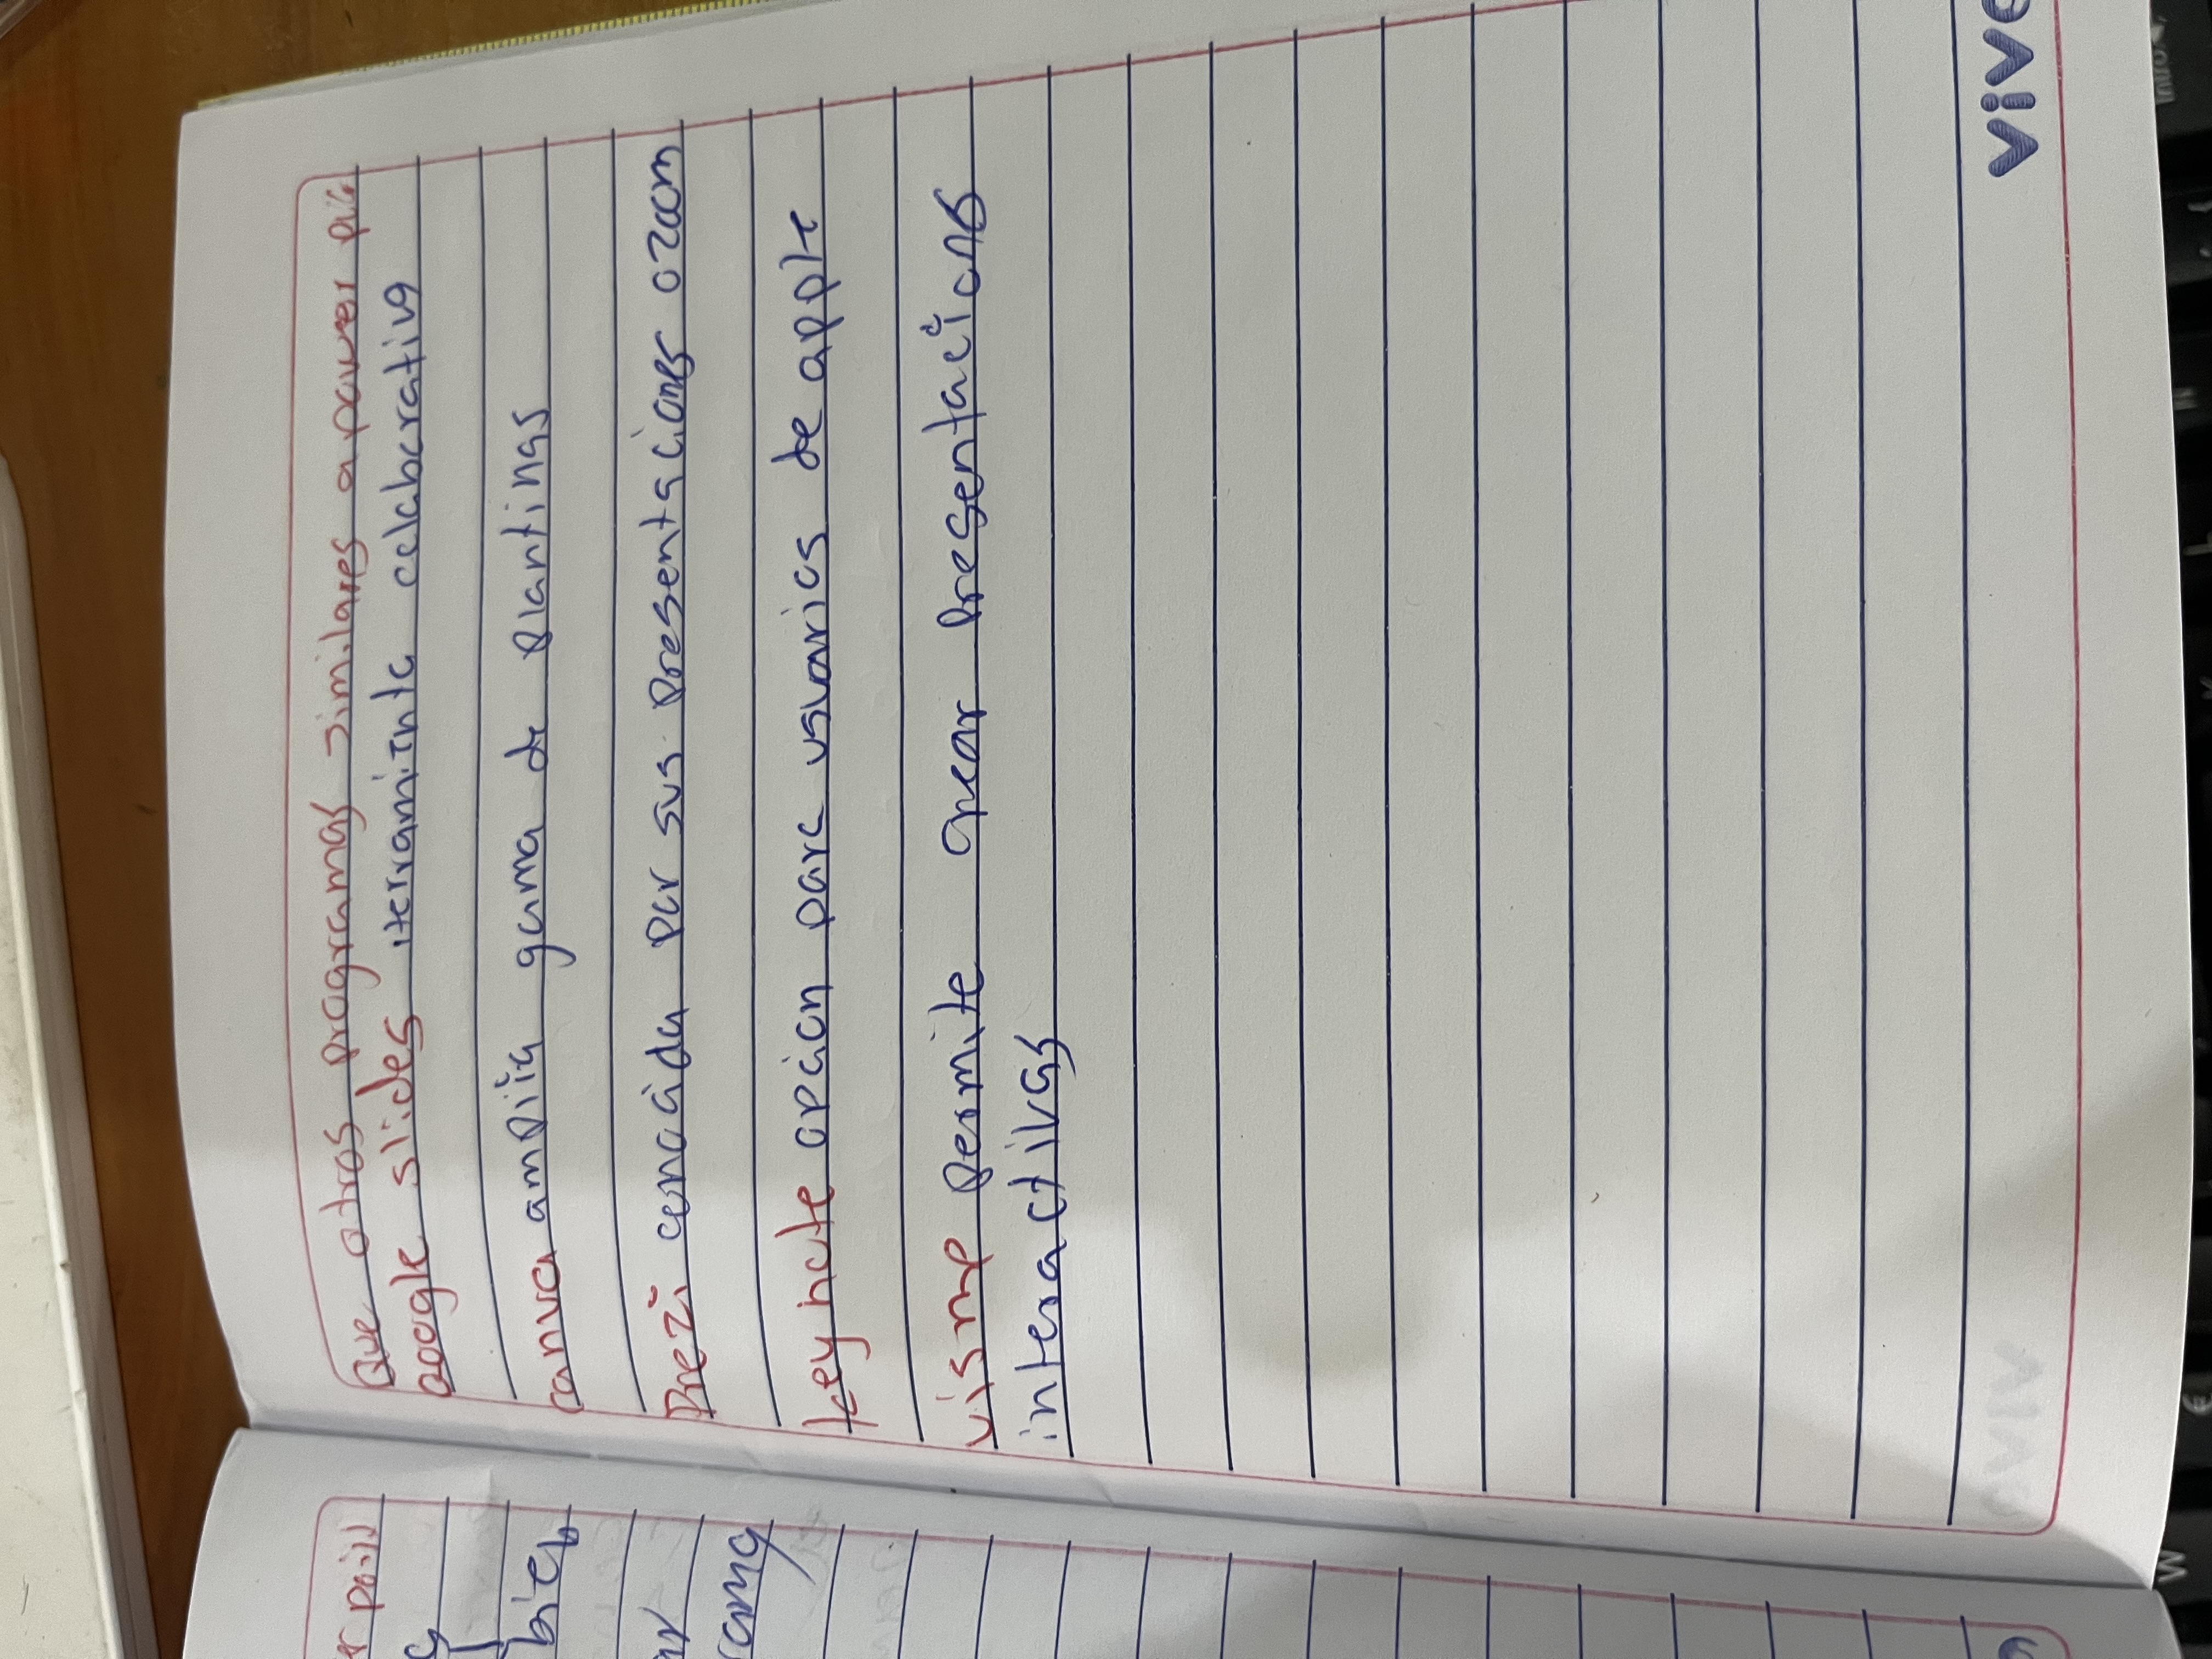 Que otros programas similares a power
Google slides iterramintc colaborativa
canva amplia gama de plantinas
Prezi conocida por sus Presentaciones o zoom
keynote opcion para usuarios de apple
visme permite crear presentacions
interactivas
vive
r poin
bier